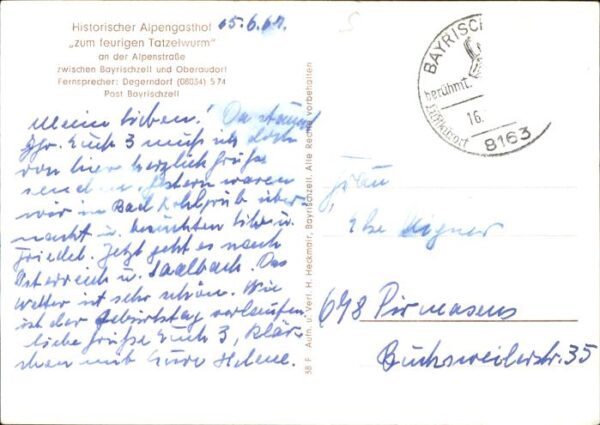 Historischer Alpengasthof
„zum feurigen Tatzelwurm"
an der Alpenstraße
zwischen Bayrischzell und Oberaudorf
Fernsprecher: Degerndorf (08034) 574
Post Bayrischzell
15.6.
Meine Lieben!
Euch 3 muß ich doch
von hier herzlich Grüße
senden. Gestern waren
wir in Bad Kohlgrub über-
nacht u. besuchten u.
Friedel. Jetzt geht es nach
Österreich u. Saalbach. Das
Wetter ist sehr schön. Wie
ist der Geburtstag verlaufen.
liebe Grüße Euch 3, Klär-
chen und Eure Helene.
38 F Aufn. u. Verl. H. Heckmair, Bayrischzell. Alle Rechte vorbehalten
BAYRISCH
berühmt.
Luftkurort
16.
8163
Frau
Aigner
678 Pirmasens
Buchsweilerstr. 35